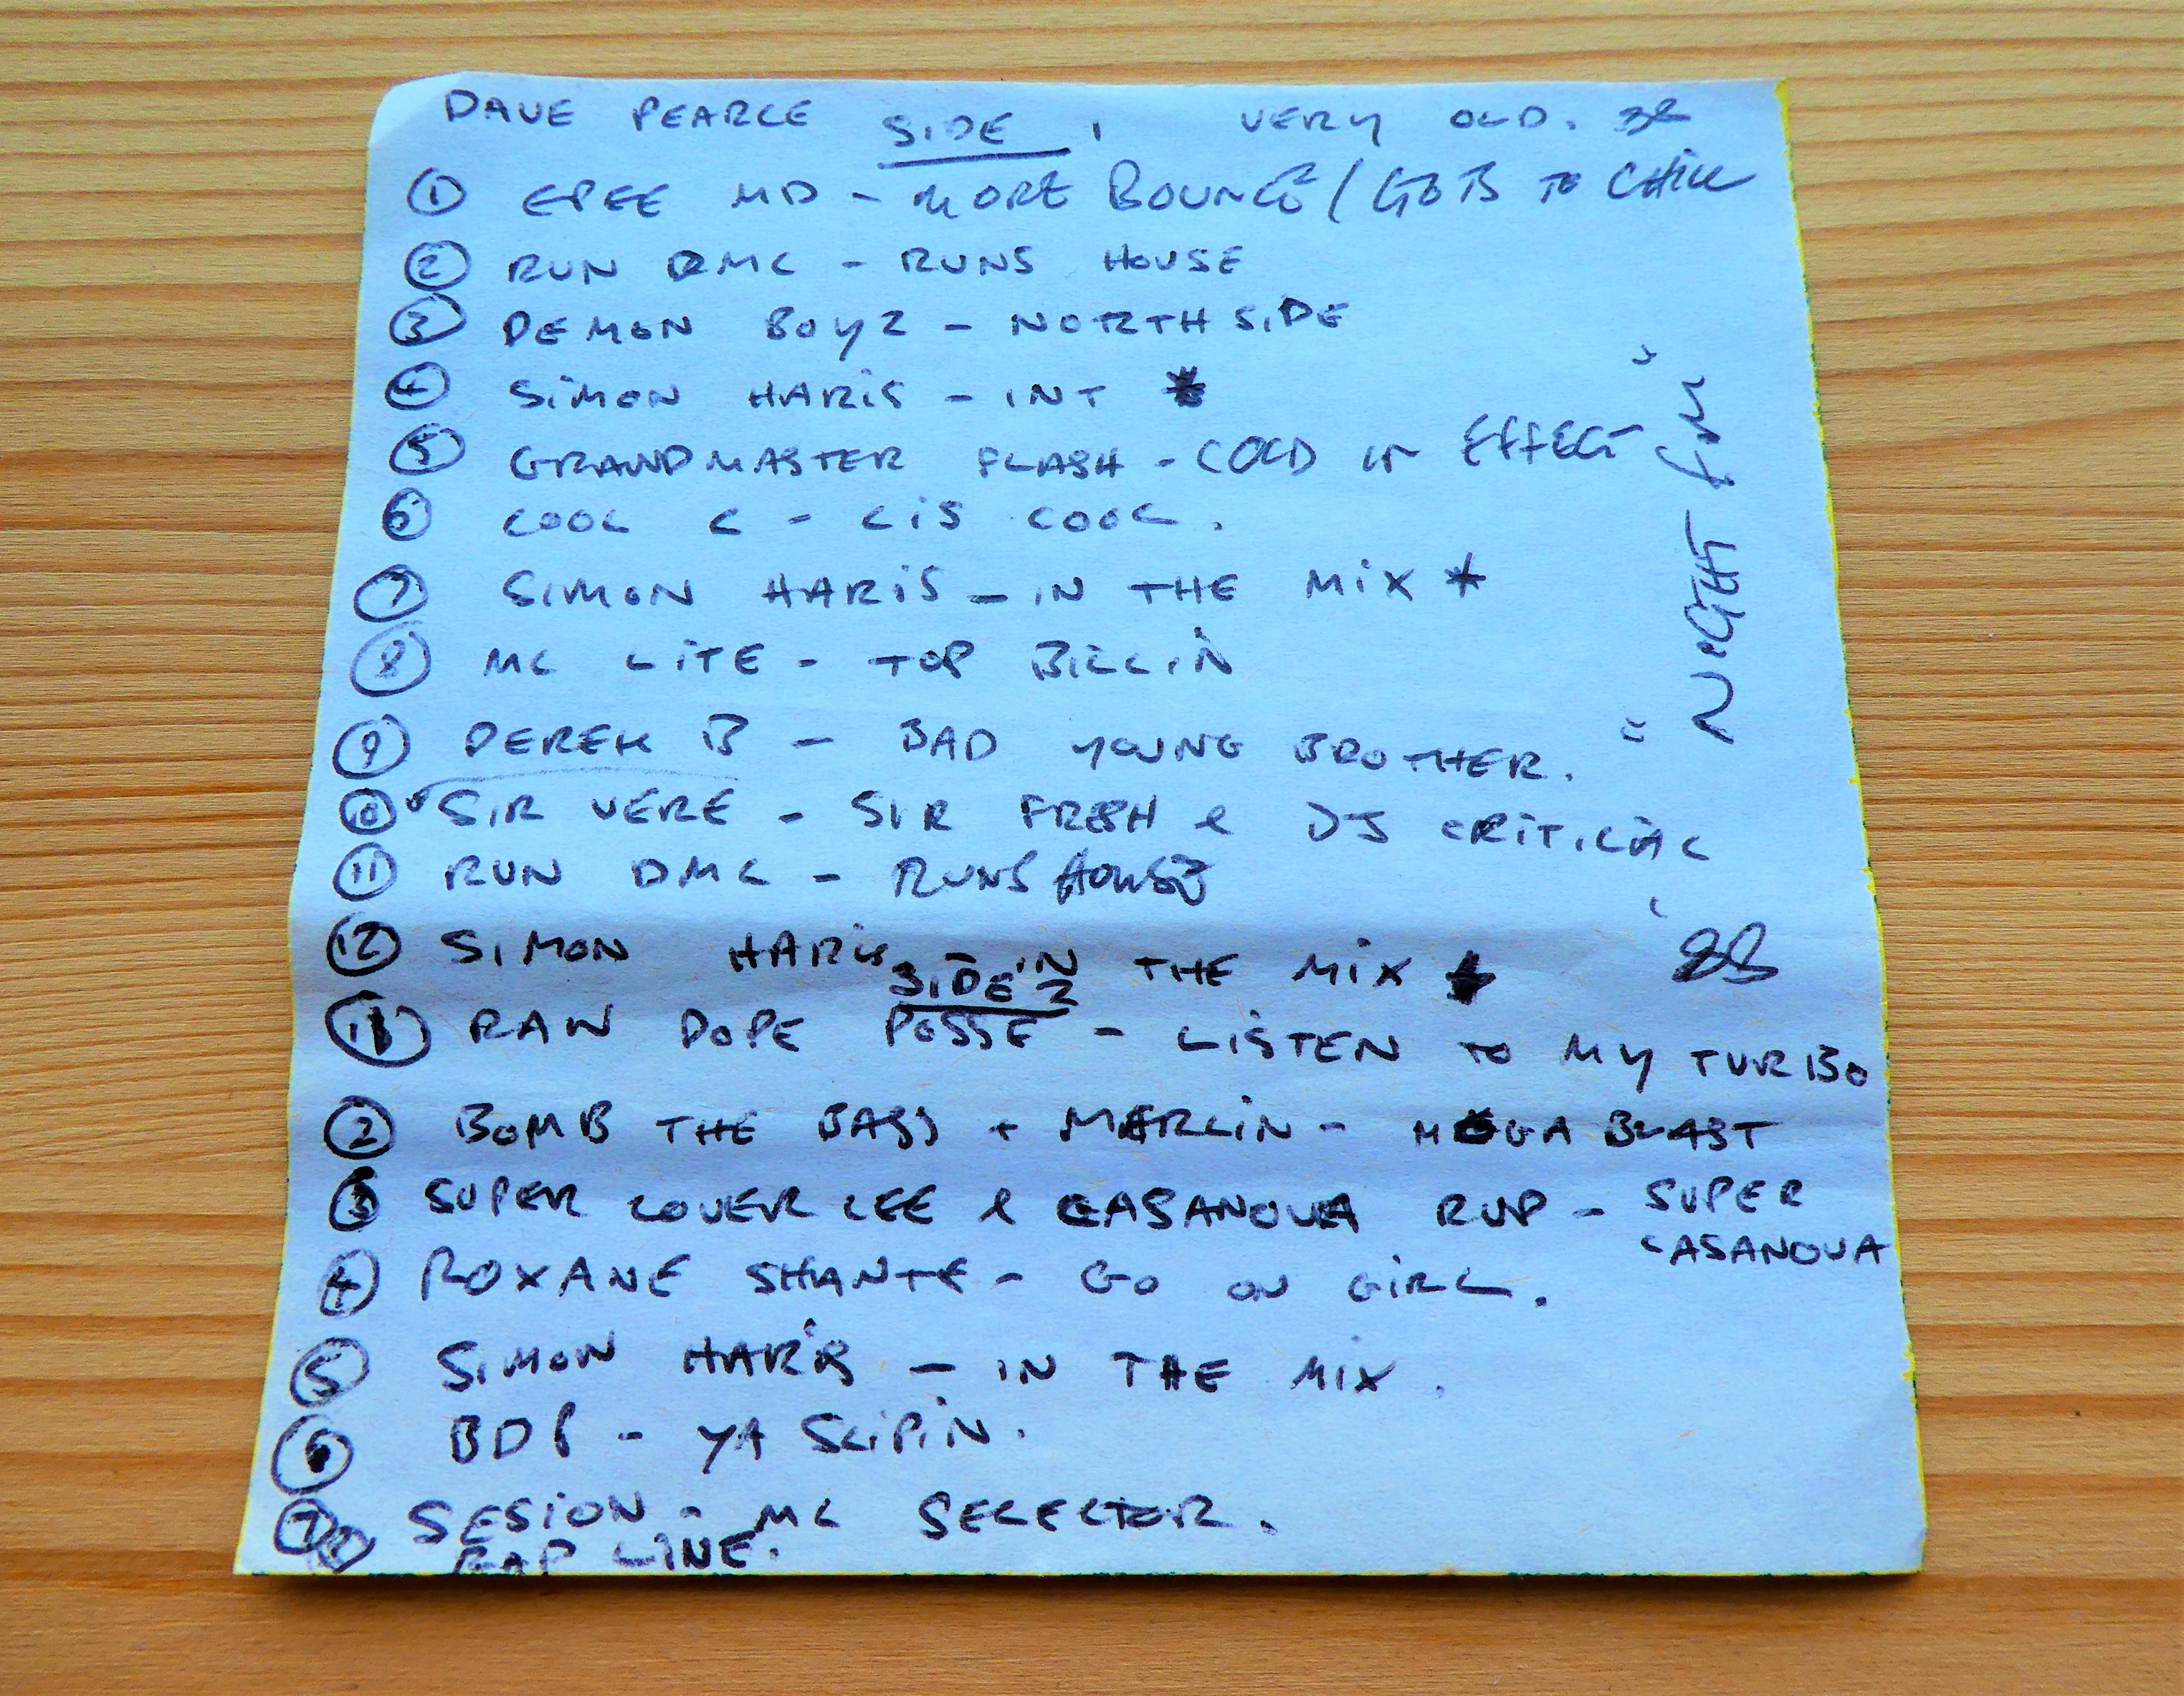 DAVE PEARCE SIDE 1 VERY OLD. 38
① EPEE MD - MORE BOUNCE / GOT TO CHILL
② RUN DMC - RUNS HOUSE
③ DEMON BOYZ - NORTHSIDE
④ SIMON HARIS - INT *
⑤ GRANDMASTER FLASH - COLD IN EFFECT
⑥ COOL C - C IS COOL.
⑦ SIMON HARIS - IN THE MIX *
⑧ MC LITE - TOP BILLIN
⑨ DEREK B - BAD YOUNG BROTHER.
⑩ SIR VERE - SIR FRESH & DJ CRITICIAL
⑪ RUN DMC - RUNS HOUSE
⑫ SIMON HARIS - IN THE MIX *
SIDE 2
① RAW DOPE POSSE - LISTEN TO MY TURBO
② BOMB THE BASS + MERLIN - MEGA BLAST
③ SUPER LOVER LEE & CASANOVA RUP - SUPER
CASANOVA
④ ROXANE SHANTE - GO ON GIRL.
⑤ SIMON HARIS - IN THE MIX.
⑥ BDP - YA SLIPIN.
⑦ SESION - MC SELECTOR.
⑧ RAP LINE.
"NIGHT FM"
'88